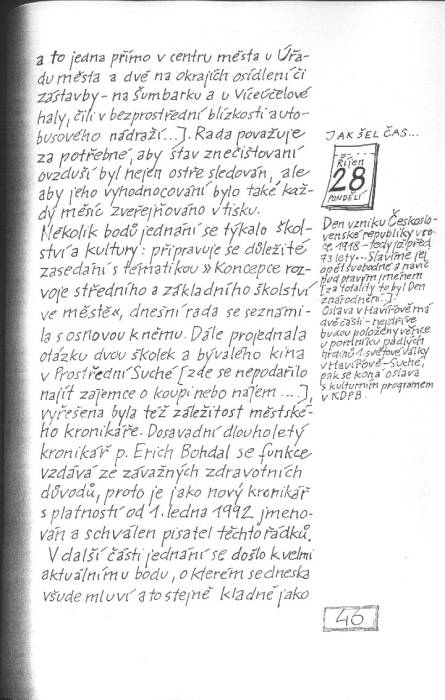 a to jedna přímo v centru města u Úřa-
du města a dvě na okrajích osídlení či
zástavby – na Šumbarku a u Víceúčelové
haly, čili v bezprostřední blízkosti auto-
busového nádraží...]. Rada považuje
za potřebné, aby stav znečišťovaní
ovzduší byl nejen ostře sledován, ale
aby jeho vyhodnocování bylo také kaž-
dý měsíc zveřejňováno v tisku.
Několik bodů jednání se týkalo škol-
ství a kultury: připravuje se důležité
zasedání s tematikou »Koncepce roz-
voje středního a základního školství
ve městě«, dnešní rada se seznámi-
la s osnovou k němu. Dále projednala
otázku dvou školek a bývalého kina
v Prostřední Suché [zde se nepodařilo
najít zájemce o koupi nebo nájem ...],
vyřešena byla též záležitost městské-
ho kronikáře. Dosavadní dlouholetý
kronikář p. Erich Bohdal se funkce
vzdává ze závažných zdravotních
důvodů, proto je jako nový kronikář
s platností od 1. ledna 1992 jmeno-
ván a schválen pisatel těchto řádků.
V další části jednání se došlo k velmi
aktuálnímu bodu, o kterém se dneska
všude mluví a to stejně kladně jako
JAK ŠEL ČAS...
Říjen
28
PONDĚLÍ
Den vzniku Českoslo-
venské republiky v ro-
ce 1918 – tedy již před
73 lety... Slavíme jej
opět svobodně a navíc
pod pravým jménem
[za totality to byl Den
znárodnění...].
Oslava v Havířově má
dvě části – nejdříve
budou položeny věnce
u pomníku padlých
hrdinů 1. světové války
v Havířově – Suché,
pak se koná oslava
s kulturním programem
v KDPB.
46